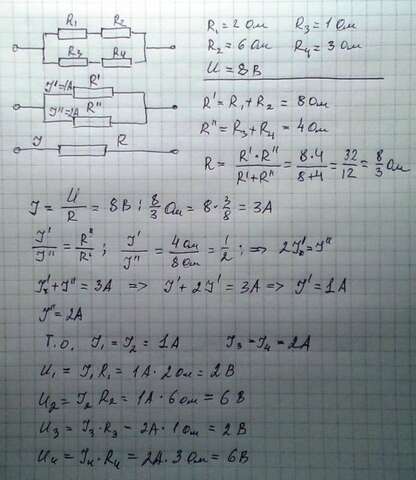 R₁ R₂
R₃ R₄
R₁ = 2 Ом R₃ = 1 Ом
R₂ = 6 Ом R₄ = 3 Ом
U = 8 В
J' = 1A R'
J'' = 2A R''
J R
R' = R₁ + R₂ = 8 Ом
R'' = R₃ + R₄ = 4 Ом
R = R'·R''/R'+R'' = 8·4/8+4 = 32/12 = 8/3 Ом
J = U/R = 8 В : 8/3 Ом = 8·3/8 = 3A
J'/J'' = R''/R' ; J'/J'' = 4 Ом/8 Ом = 1/2 ; => 2J' = J''
J' + J'' = 3A => J' + 2J' = 3A => J' = 1A
J'' = 2A
Т.О. J₁ = J₂ = 1A J₃ = J₄ = 2A
U₁ = J₁R₁ = 1A · 2 Ом = 2 В
U₂ = J₂ R₂ = 1A · 6 Ом = 6 В
U₃ = J₃ · R₃ = 2A · 1 Ом = 2 В
U₄ = J₄ · R₄ = 2A · 3 Ом = 6 В